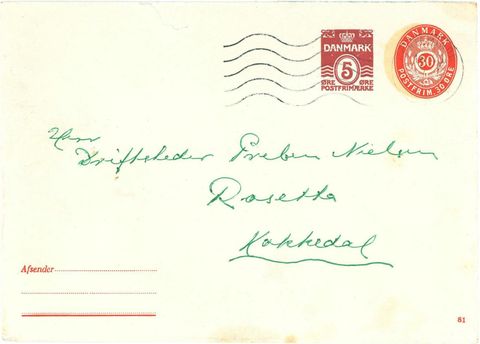 DANMARK
5
ØRE ØRE
POSTFRIMÆRKE
DANMARK
30
POSTFRIM. 30 ØRE
Herr
Driftsleder Preben Nielsen
Rosetta
Kokkedal
Afsender
81